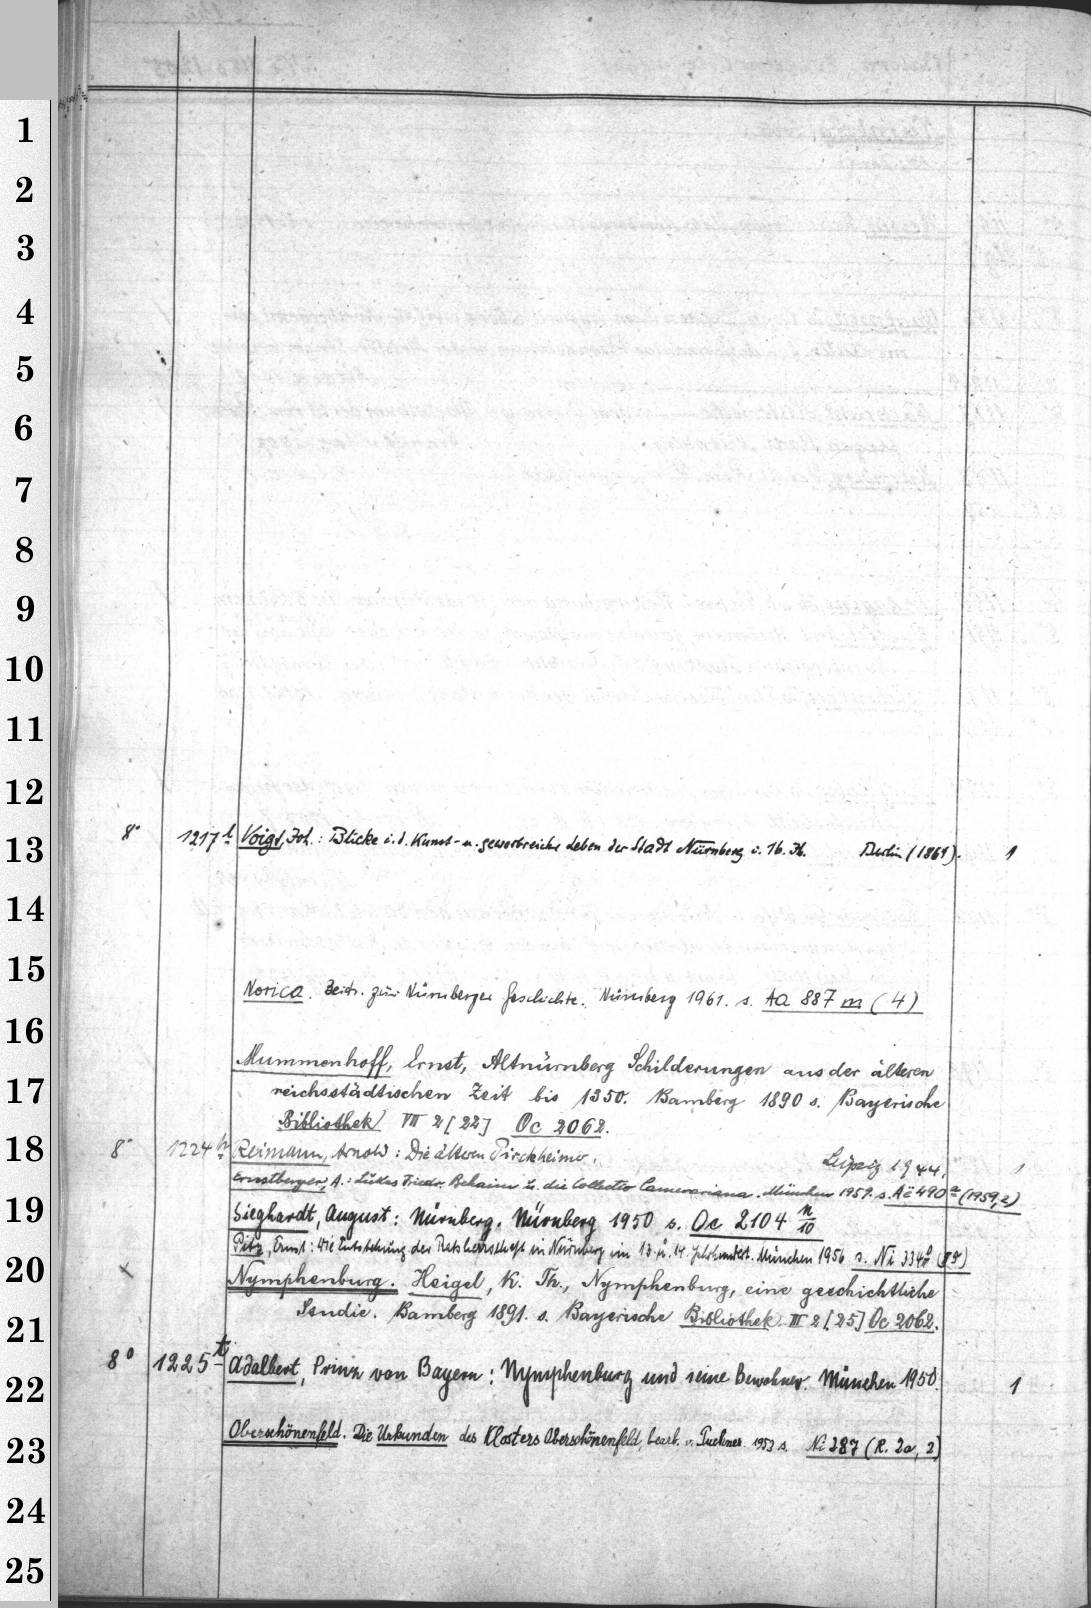 1
2
3
4
5
6
7
8
9
10
11
12
13
14
15
16
17
18
19
20
21
22
23
24
25
8° 1217 l Voigt, Joh.: Blicke i. d. Kunst- u. gewerbreiche Leben der Stadt Nürnberg i. 16. Jh. Berlin (1861). 1
Norica. Beitr. zur Nürnberger Geschichte. Nürnberg 1961. s. Aa 887 m (4)
Mummenhoff, Ernst, Altnürnberg Schilderungen aus der älteren
reichsstädtischen Zeit bis 1350. Bamberg 1890 s. Bayerische
Bibliothek VII 2 [22] Oc 2062.
8° 1224 h Reimann, Arnold: Die älteren Pirckheimer. Leipzig 1944. 1
Ernstberger, A.: Lukas Friedr. Behaim u. die Collectio Camerariana. München 1959. s. (1959,2)
Sieghardt, August: Nürnberg. Nürnberg 1950 s. Oc 2104 n/10
Pitz, Ernst: Die Entstehung der Ratsherrschaft in Nürnberg im 13. u. 14. Jahrhundert. München 1956 s. Ni
Nymphenburg. Heigel, K. Th., Nymphenburg, eine geschichtliche
Studie. Bamberg 1891. s. Bayerische Bibliothek III 2 [25] Oc 2062.
8° 1225 t Adalbert, Prinz von Bayern: Nymphenburg und seine Bewohner. München 1950. 1
Oberschönenfeld. Die Urkunden des Klosters Oberschönenfeld, bearb. v. Puchner 1953 s. Ni 287 (R. 2a, 2)